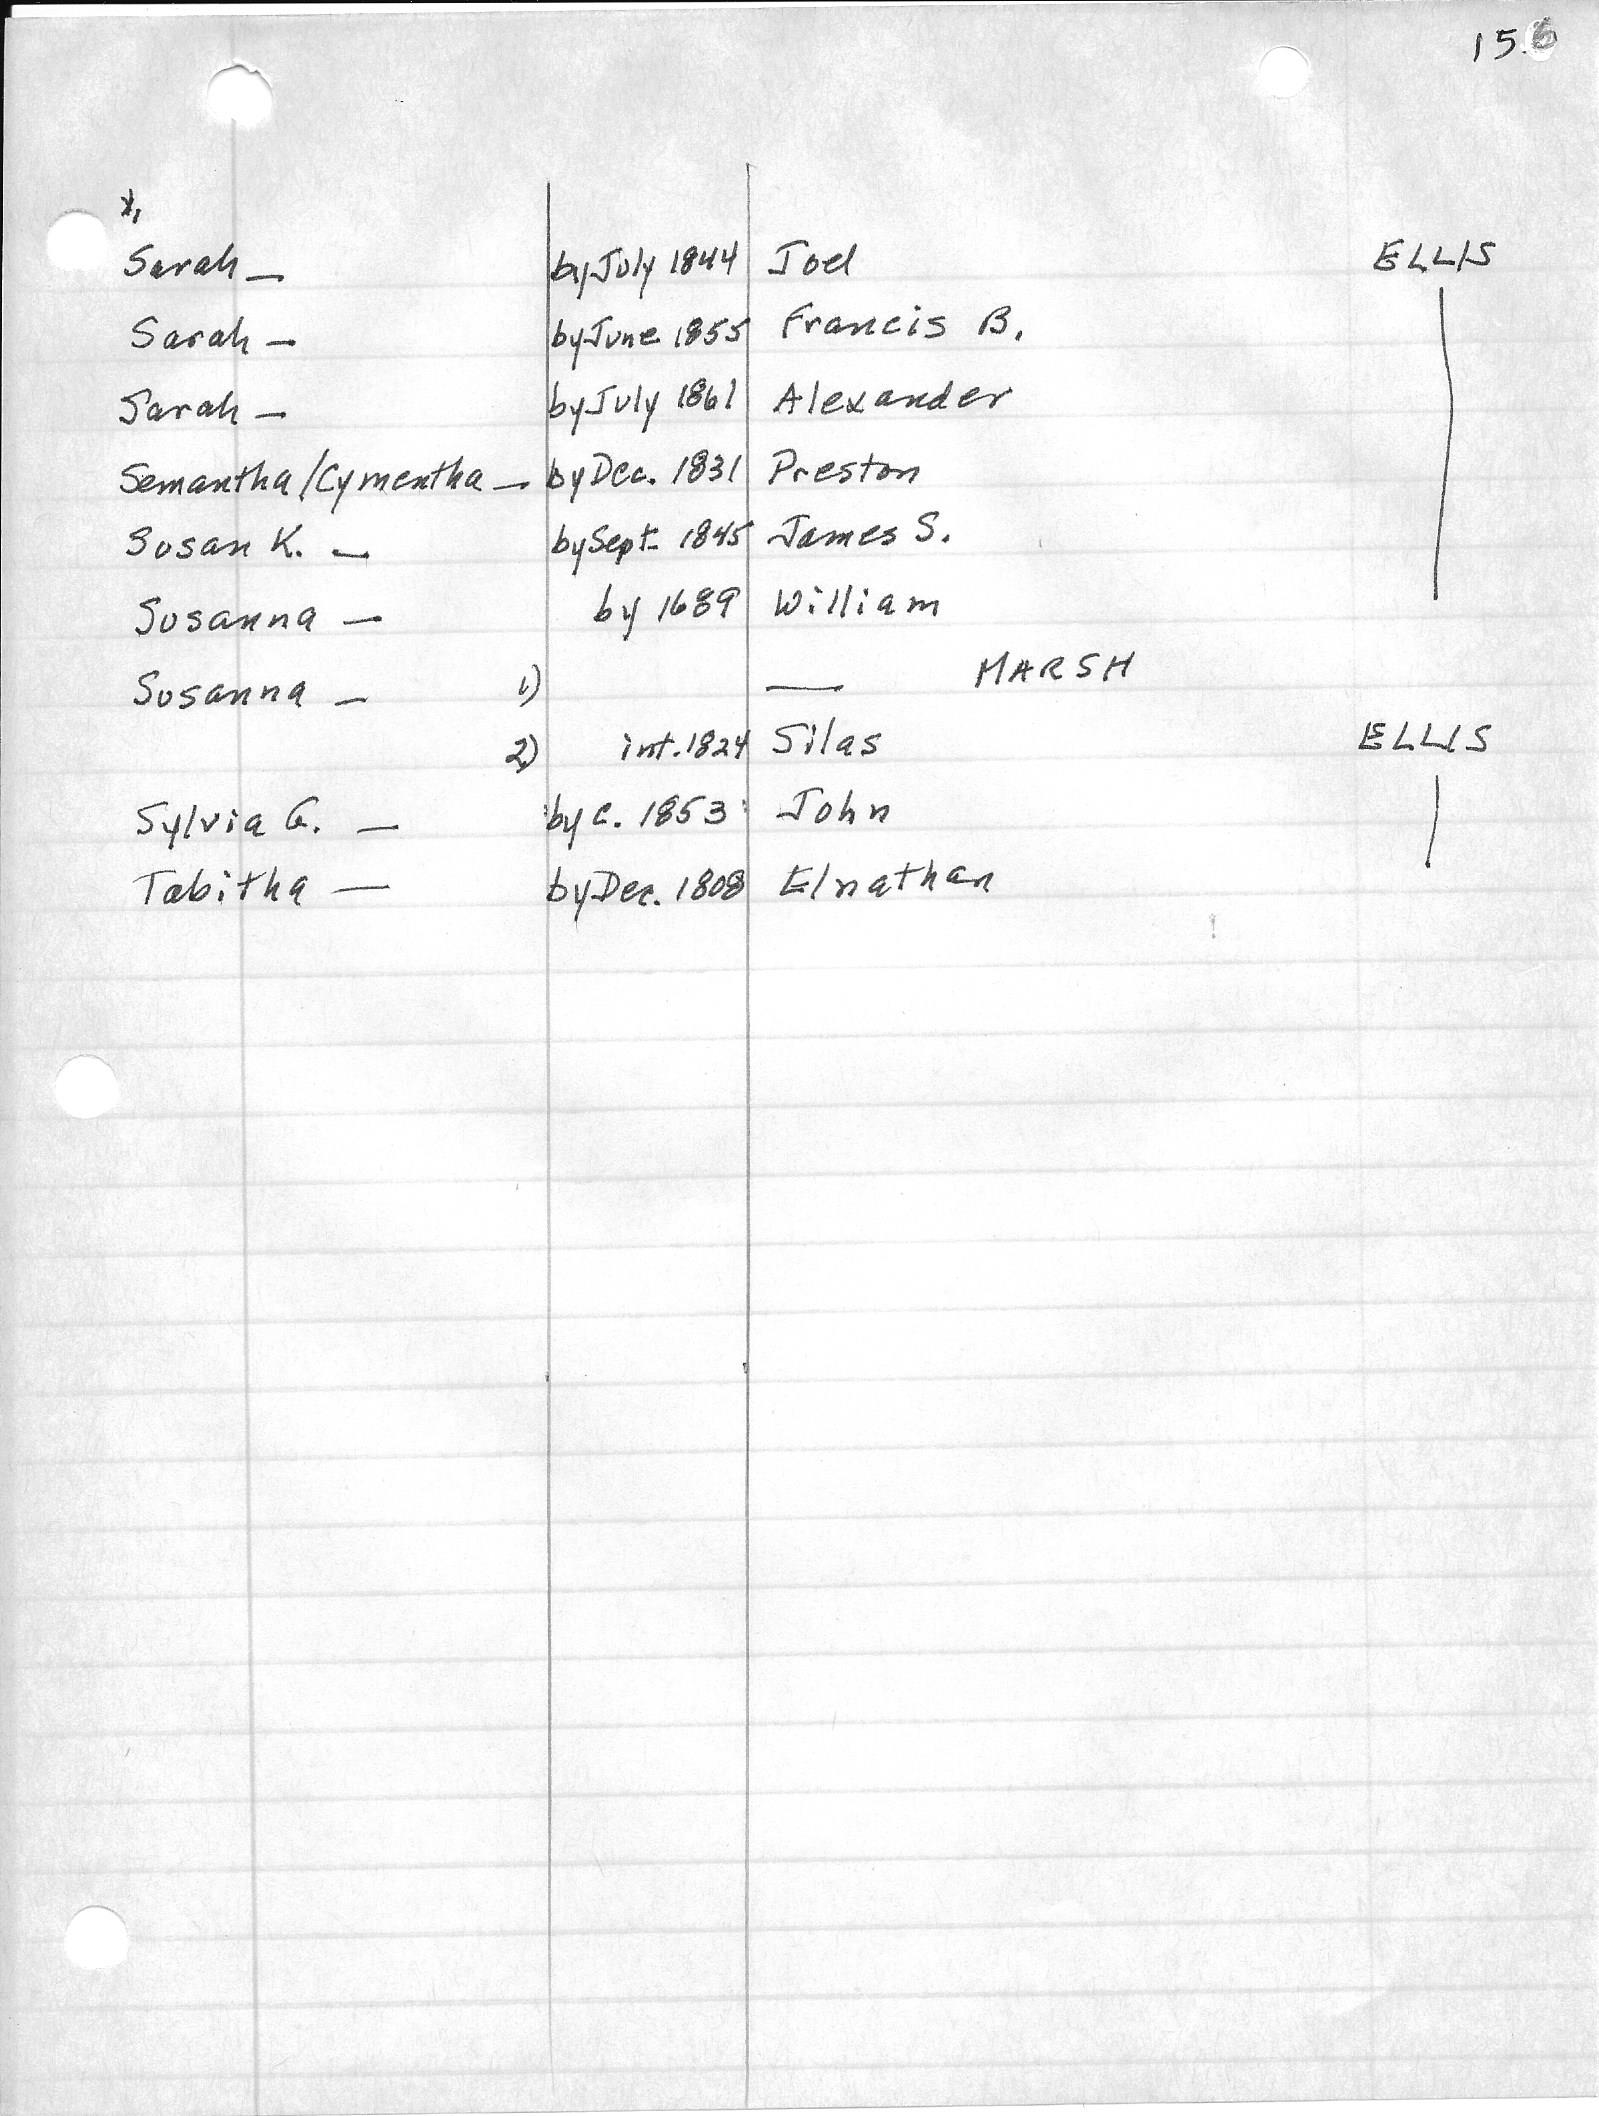 15.6
*,
Sarah — by July 1844 Joel ELLIS
Sarah — by June 1855 Francis B.
Sarah — by July 1861 Alexander
Semantha/Cymentha — by Dec. 1831 Preston
Susan K. — by Sept. 1845 James S.
Susanna — by 1689 William
Susanna — 1) — MARSH
2) int. 1824 Silas ELLIS
Sylvia G. — by c. 1853 John
Tabitha — by Dec. 1808 Elnathan